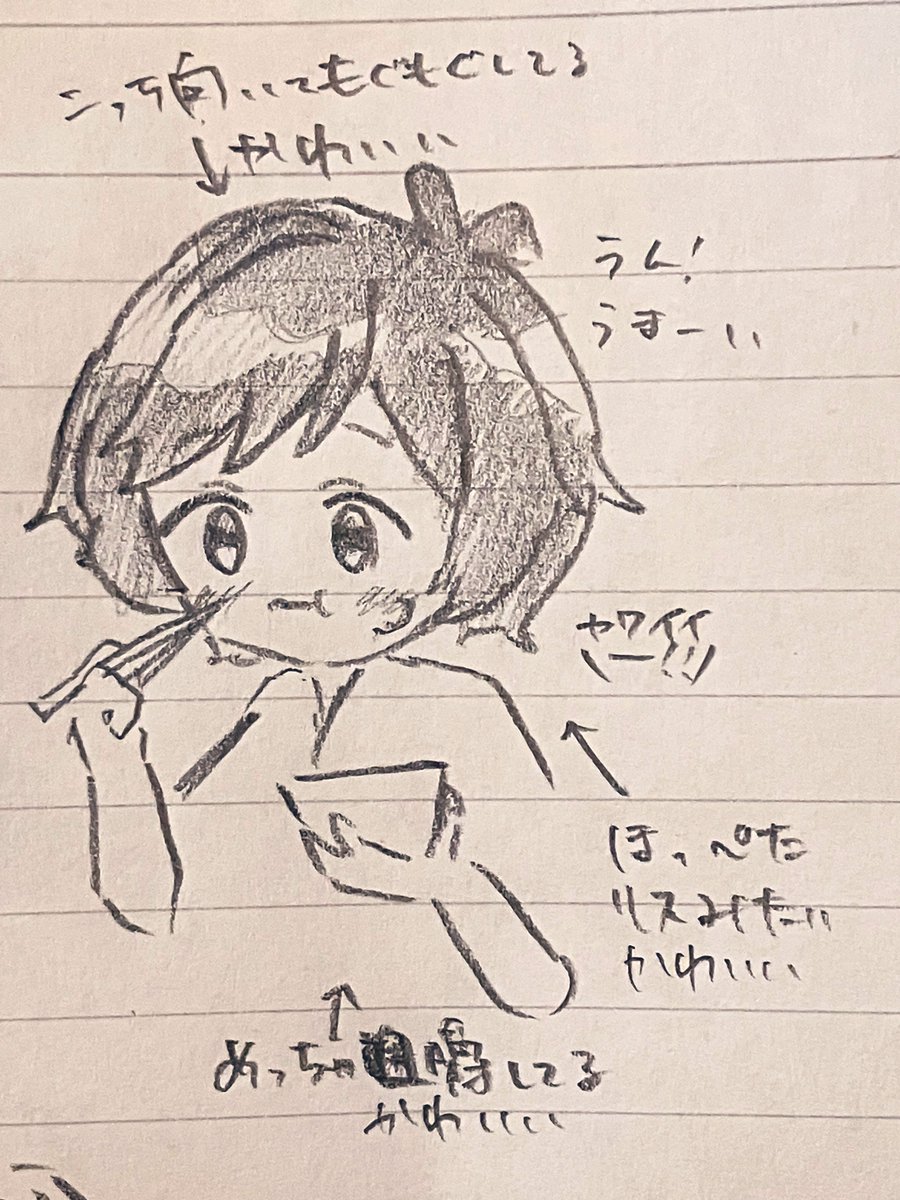 こっち向いてもぐもぐしてる
かわいい
うん!
うまーい
カワイイ
ほっぺた
リスみたい
かわいい
めっちゃ してる
かわいいい